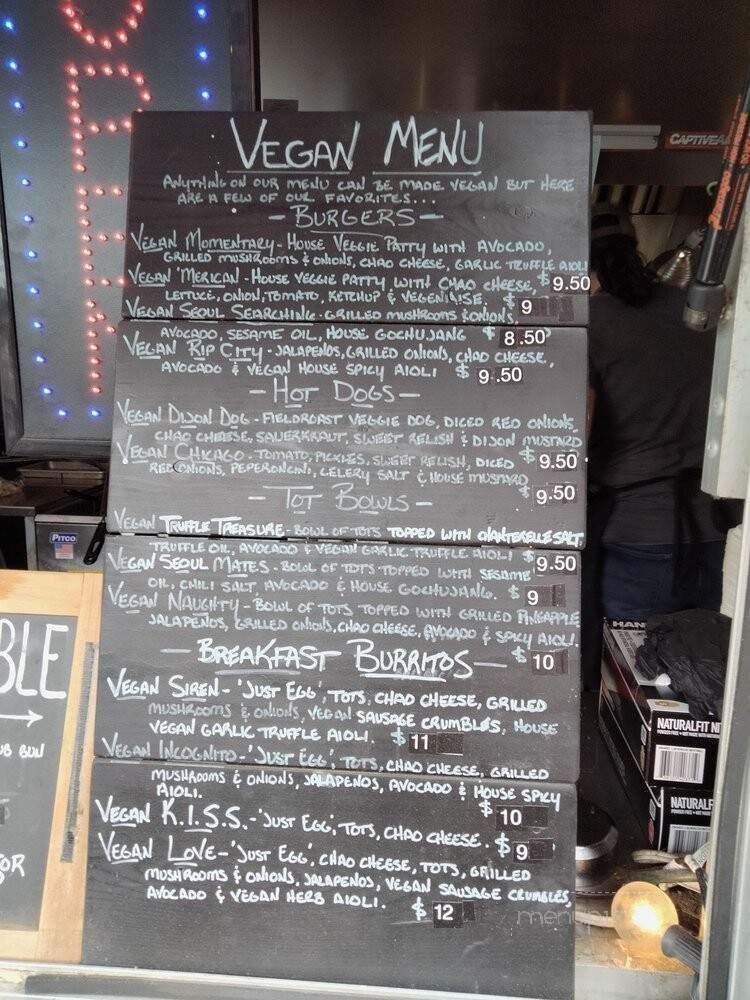 OPEN
CAPTIVEA
VEGAN MENU
ANYTHING ON OUR MENU CAN BE MADE VEGAN BUT HERE
ARE A FEW OF OUR FAVORITES...
- BURGERS -
VEGAN MOMENTARY - HOUSE VEGGIE PATTY WITH AVOCADO,
GRILLED MUSHROOMS & ONIONS, CHAO CHEESE, GARLIC TRUFFLE AIOLI
$ 9.50
VEGAN 'MERICAN - HOUSE VEGGIE PATTY WITH CHAO CHEESE,
LETTUCE, ONION, TOMATO, KETCHUP & VEGENAISE. $ 9
VEGAN SEOUL SEARCHING - GRILLED MUSHROOMS & ONIONS,
AVOCADO, SESAME OIL, HOUSE GOCHUJANG $ 8.50
VEGAN RIP CITY - JALAPEÑOS, GRILLED ONIONS, CHAO CHEESE,
AVOCADO & VEGAN HOUSE SPICY AIOLI $ 9.50
- HOT DOGS -
VEGAN DIJON DOG - FIELDROAST VEGGIE DOG, DICED RED ONIONS,
CHAO CHEESE, SAUERKRAUT, SWEET RELISH & DIJON MUSTARD
$ 9.50
VEGAN CHICAGO - TOMATO, PICKLES, SWEET RELISH, DICED
RED ONIONS, PEPERONCINI, CELERY SALT & HOUSE MUSTARD
$ 9.50
- TOT BOWLS -
VEGAN TRUFFLE TREASURE - BOWL OF TOTS TOPPED WITH CHANTERELLE SALT,
TRUFFLE OIL, AVOCADO & VEGAN GARLIC TRUFFLE AIOLI $ 9.50
VEGAN SEOUL MATES - BOWL OF TOTS TOPPED WITH SESAME
OIL, CHILI SALT, AVOCADO & HOUSE GOCHUJANG. $ 9
VEGAN NAUGHTY - BOWL OF TOTS TOPPED WITH GRILLED PINEAPPLE,
JALAPEÑOS, GRILLED ONIONS, CHAO CHEESE, AVOCADO & SPICY AIOLI.
$ 10
- BREAKFAST BURRITOS -
VEGAN SIREN - 'JUST EGG', TOTS, CHAO CHEESE, GRILLED
MUSHROOMS & ONIONS, VEGAN SAUSAGE CRUMBLES, HOUSE
VEGAN GARLIC TRUFFLE AIOLI. $ 11
VEGAN INCOGNITO - 'JUST EGG', TOTS, CHAO CHEESE, GRILLED
MUSHROOMS & ONIONS, JALAPEÑOS, AVOCADO & HOUSE SPICY
AIOLI. $ 10
VEGAN K.I.S.S. - 'JUST EGG', TOTS, CHAO CHEESE. $ 9
VEGAN LOVE - 'JUST EGG', CHAO CHEESE, TOTS, GRILLED
MUSHROOMS & ONIONS, JALAPEÑOS, VEGAN SAUSAGE CRUMBLES,
AVOCADO & VEGAN HERB AIOLI. $ 12
PITCO
BLE
UB BUN
OR
HAN
NATURALFIT NI
NATURALF